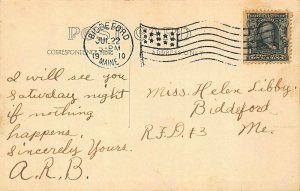 POST CARD
BIDDEFORD
JUL 22
PM
1910
MAINE
CORRESPONDENCE HERE
I will see you
Saturday night
if nothing
happens.
Sincerely Yours.
A.R.B.
Miss. Helen Libby.
Biddeford
R.F.D #3 Me.